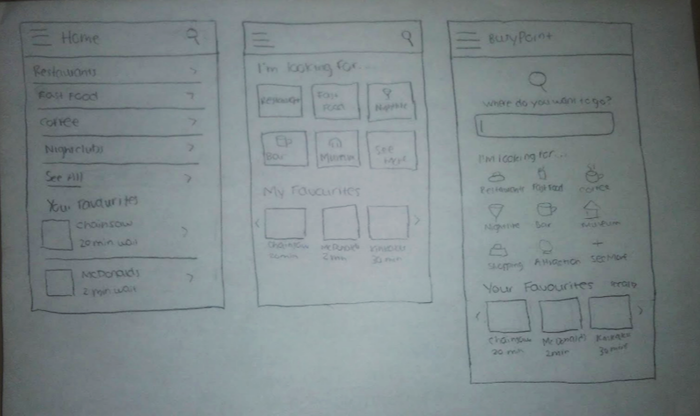 Home
Restaurants
Fast Food
Coffee
Nightclubs
See All
Your Favourites
Chainsaw
20 min wait
McDonalds
2 min wait
I'm looking for...
Restaurant
Fast Food
Nightlife
Bar
Museum
See More
My Favourites
Chainsaw
McDonalds
20 min
2 min
30 min
BusyPoint
Where do you want to go?
I'm looking for...
Restaurant
Fast Food
Coffee
Nightlife
Bar
Museum
Shopping
Attraction
See More
Your Favourites
more
Chainsaw
McDonalds
20 min
2 min
30 min